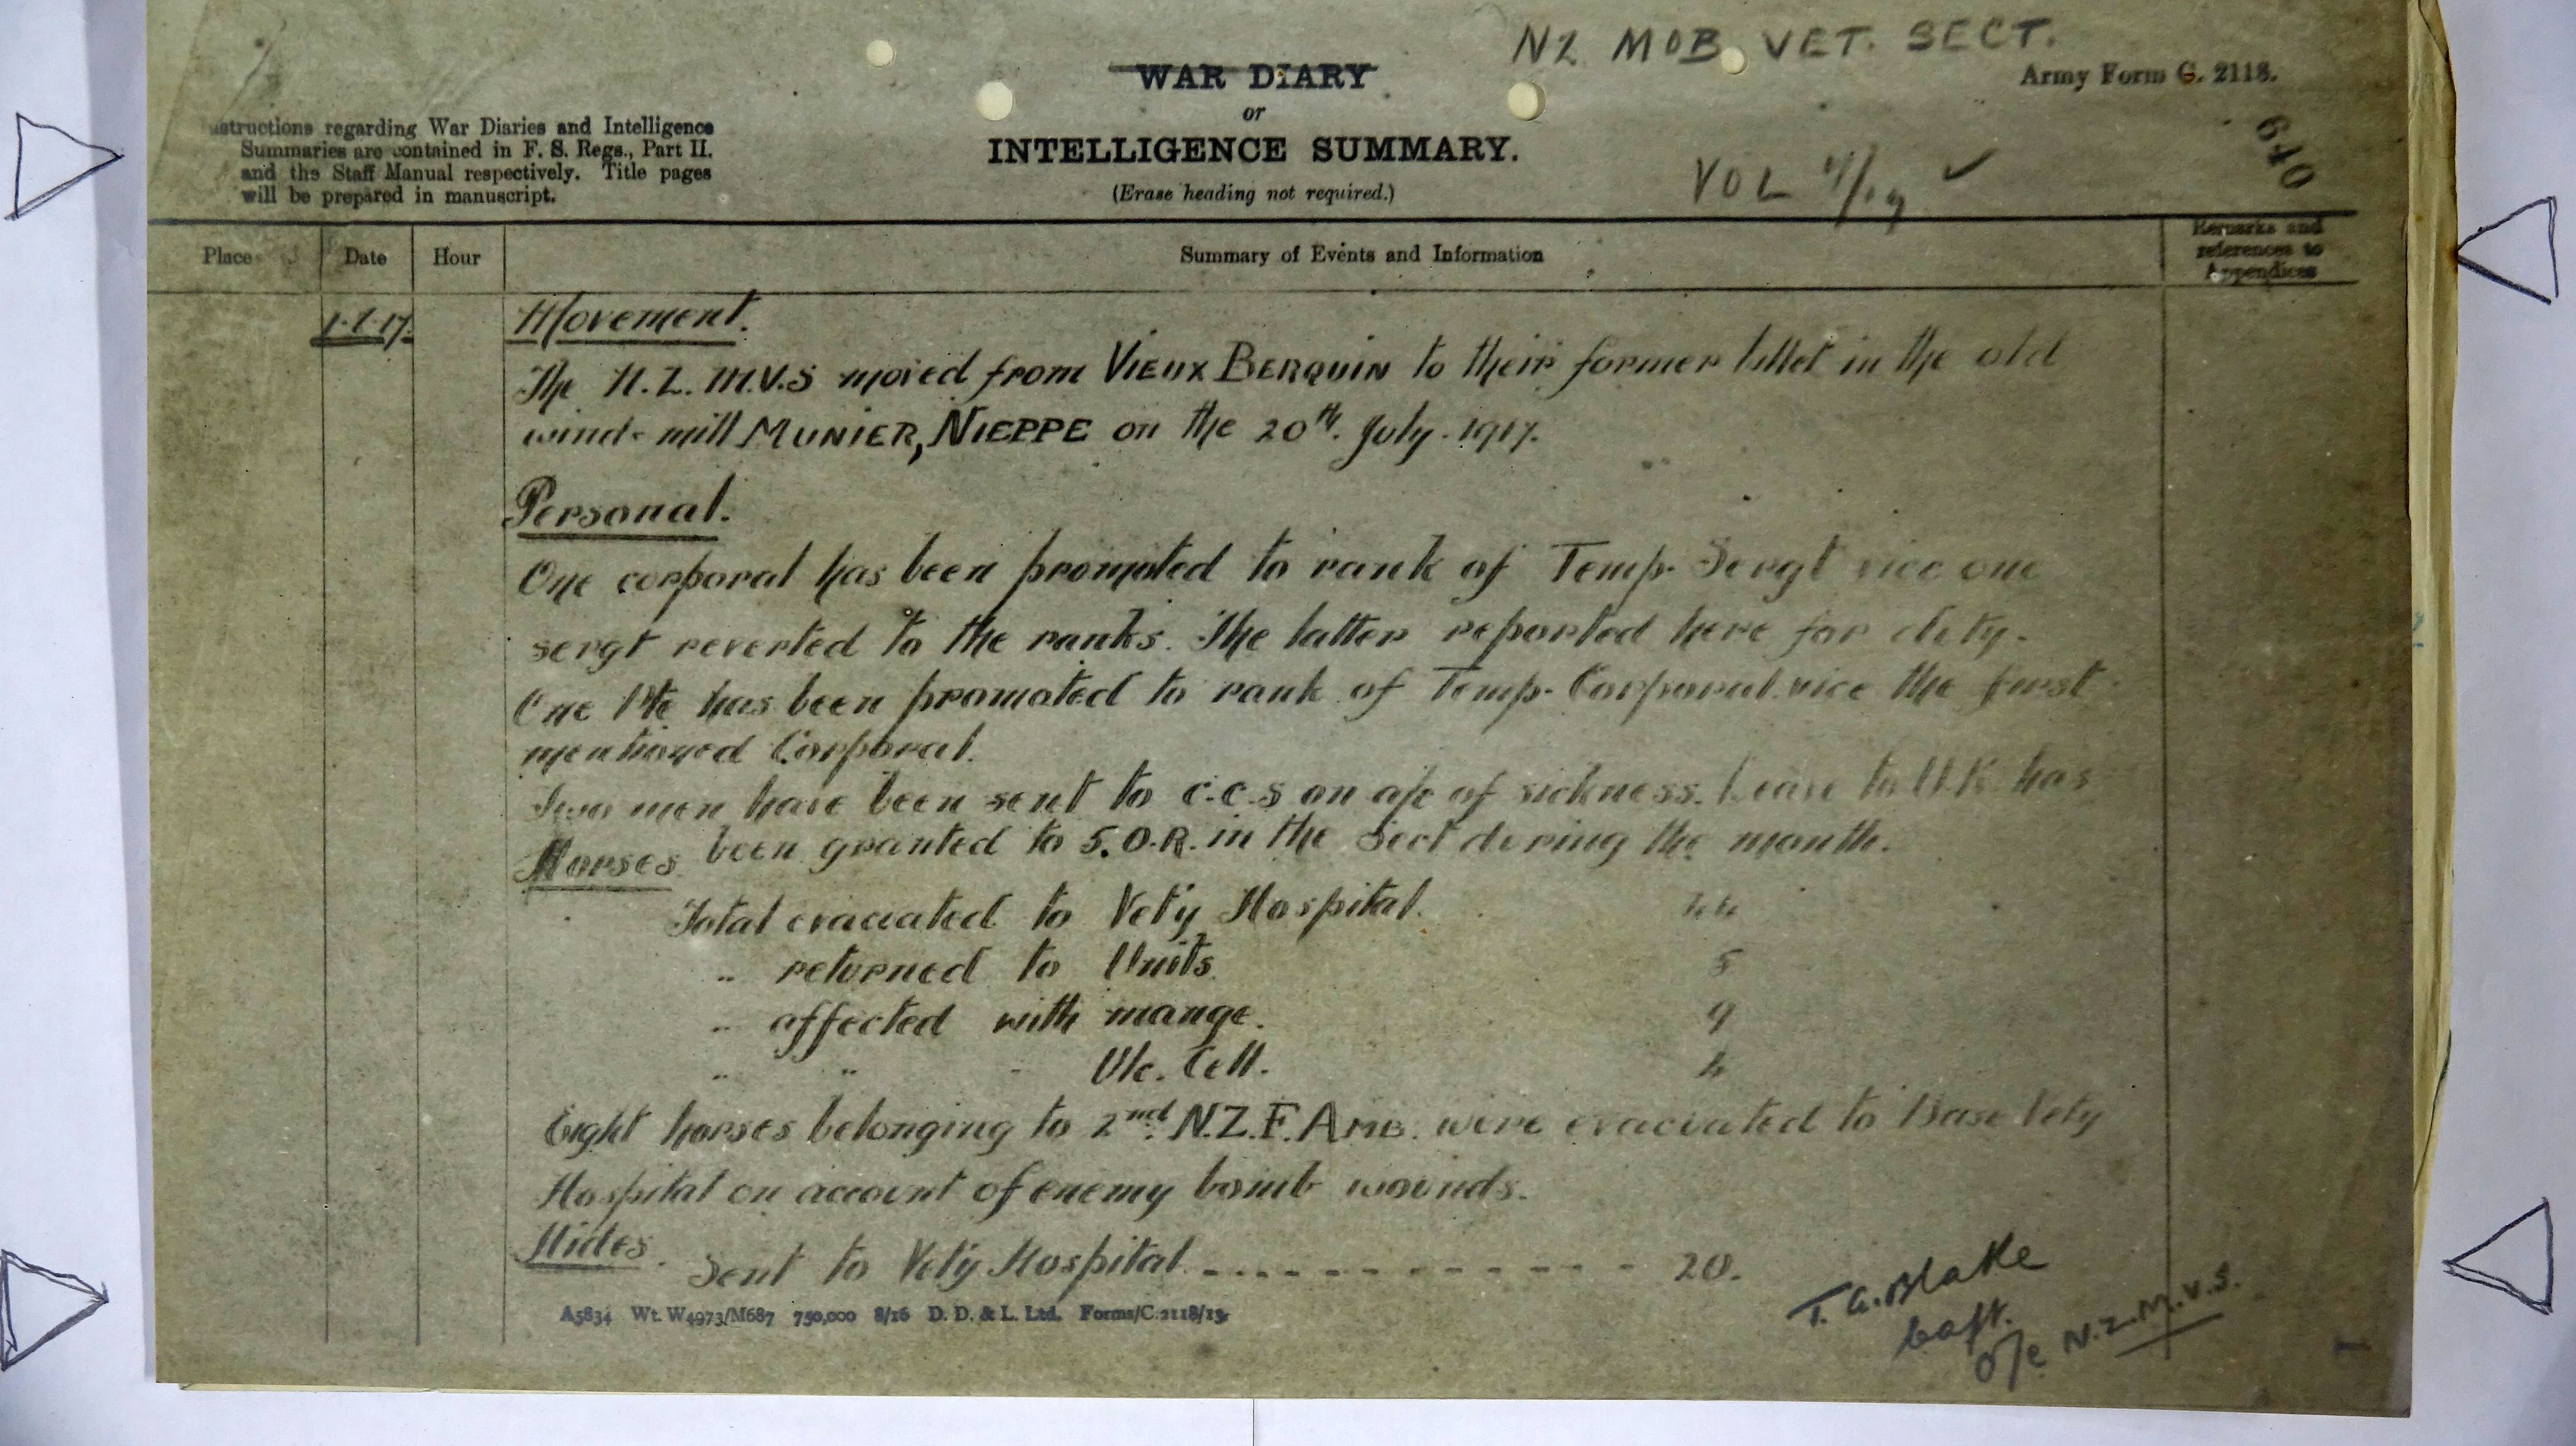 NZ MOB VET. SECT.
WAR DIARY
Army Form C. 2118.
or
INTELLIGENCE SUMMARY.
(Erase heading not required.)
nstructions regarding War Diaries and Intelligence
Summaries are contained in F. S. Regs., Part II.
and the Staff Manual respectively. Title pages
will be prepared in manuscript.
VOL
640
Place Date Hour Summary of Events and Information Remarks and
references to
Appendices
Movement.
The N.Z. M.V.S moved from VIEUX BERQUIN to their former billet in the old
wind-mill MUNIER, NIEPPE on the 20th. July. 1917.
Personal.
One corporal has been promoted to rank of Temp. Sergt vice one
sergt reverted to the ranks. The latter reported here for duty.
One Pte has been promoted to rank of Temp. Corporal vice the first
mentioned Corporal.
Two men have been sent to C.C.S on a/c of sickness. Leave to U.K. has
been granted to 5. O.R. in the Sect during the month.
Horses
Total evacuated to Vety Hospital. 44
.. returned to Units 5
.. affected with mange. 9
.. .. - Ulc. Cell. 4
Eight horses belonging to 2nd. N.Z.F. AMB. were evacuated to Base Vety
Hospital on account of enemy bomb wounds.
Hides.
Sent to Vety Hospital. - - - - - - - - - - - - 20.
A5834 Wt. W4973/M687 750,000 8/16 D. D. & L. Ltd. Forms/C.2118/13.
T. A. Blake
Capt.
O/c N.Z.M.V.S.